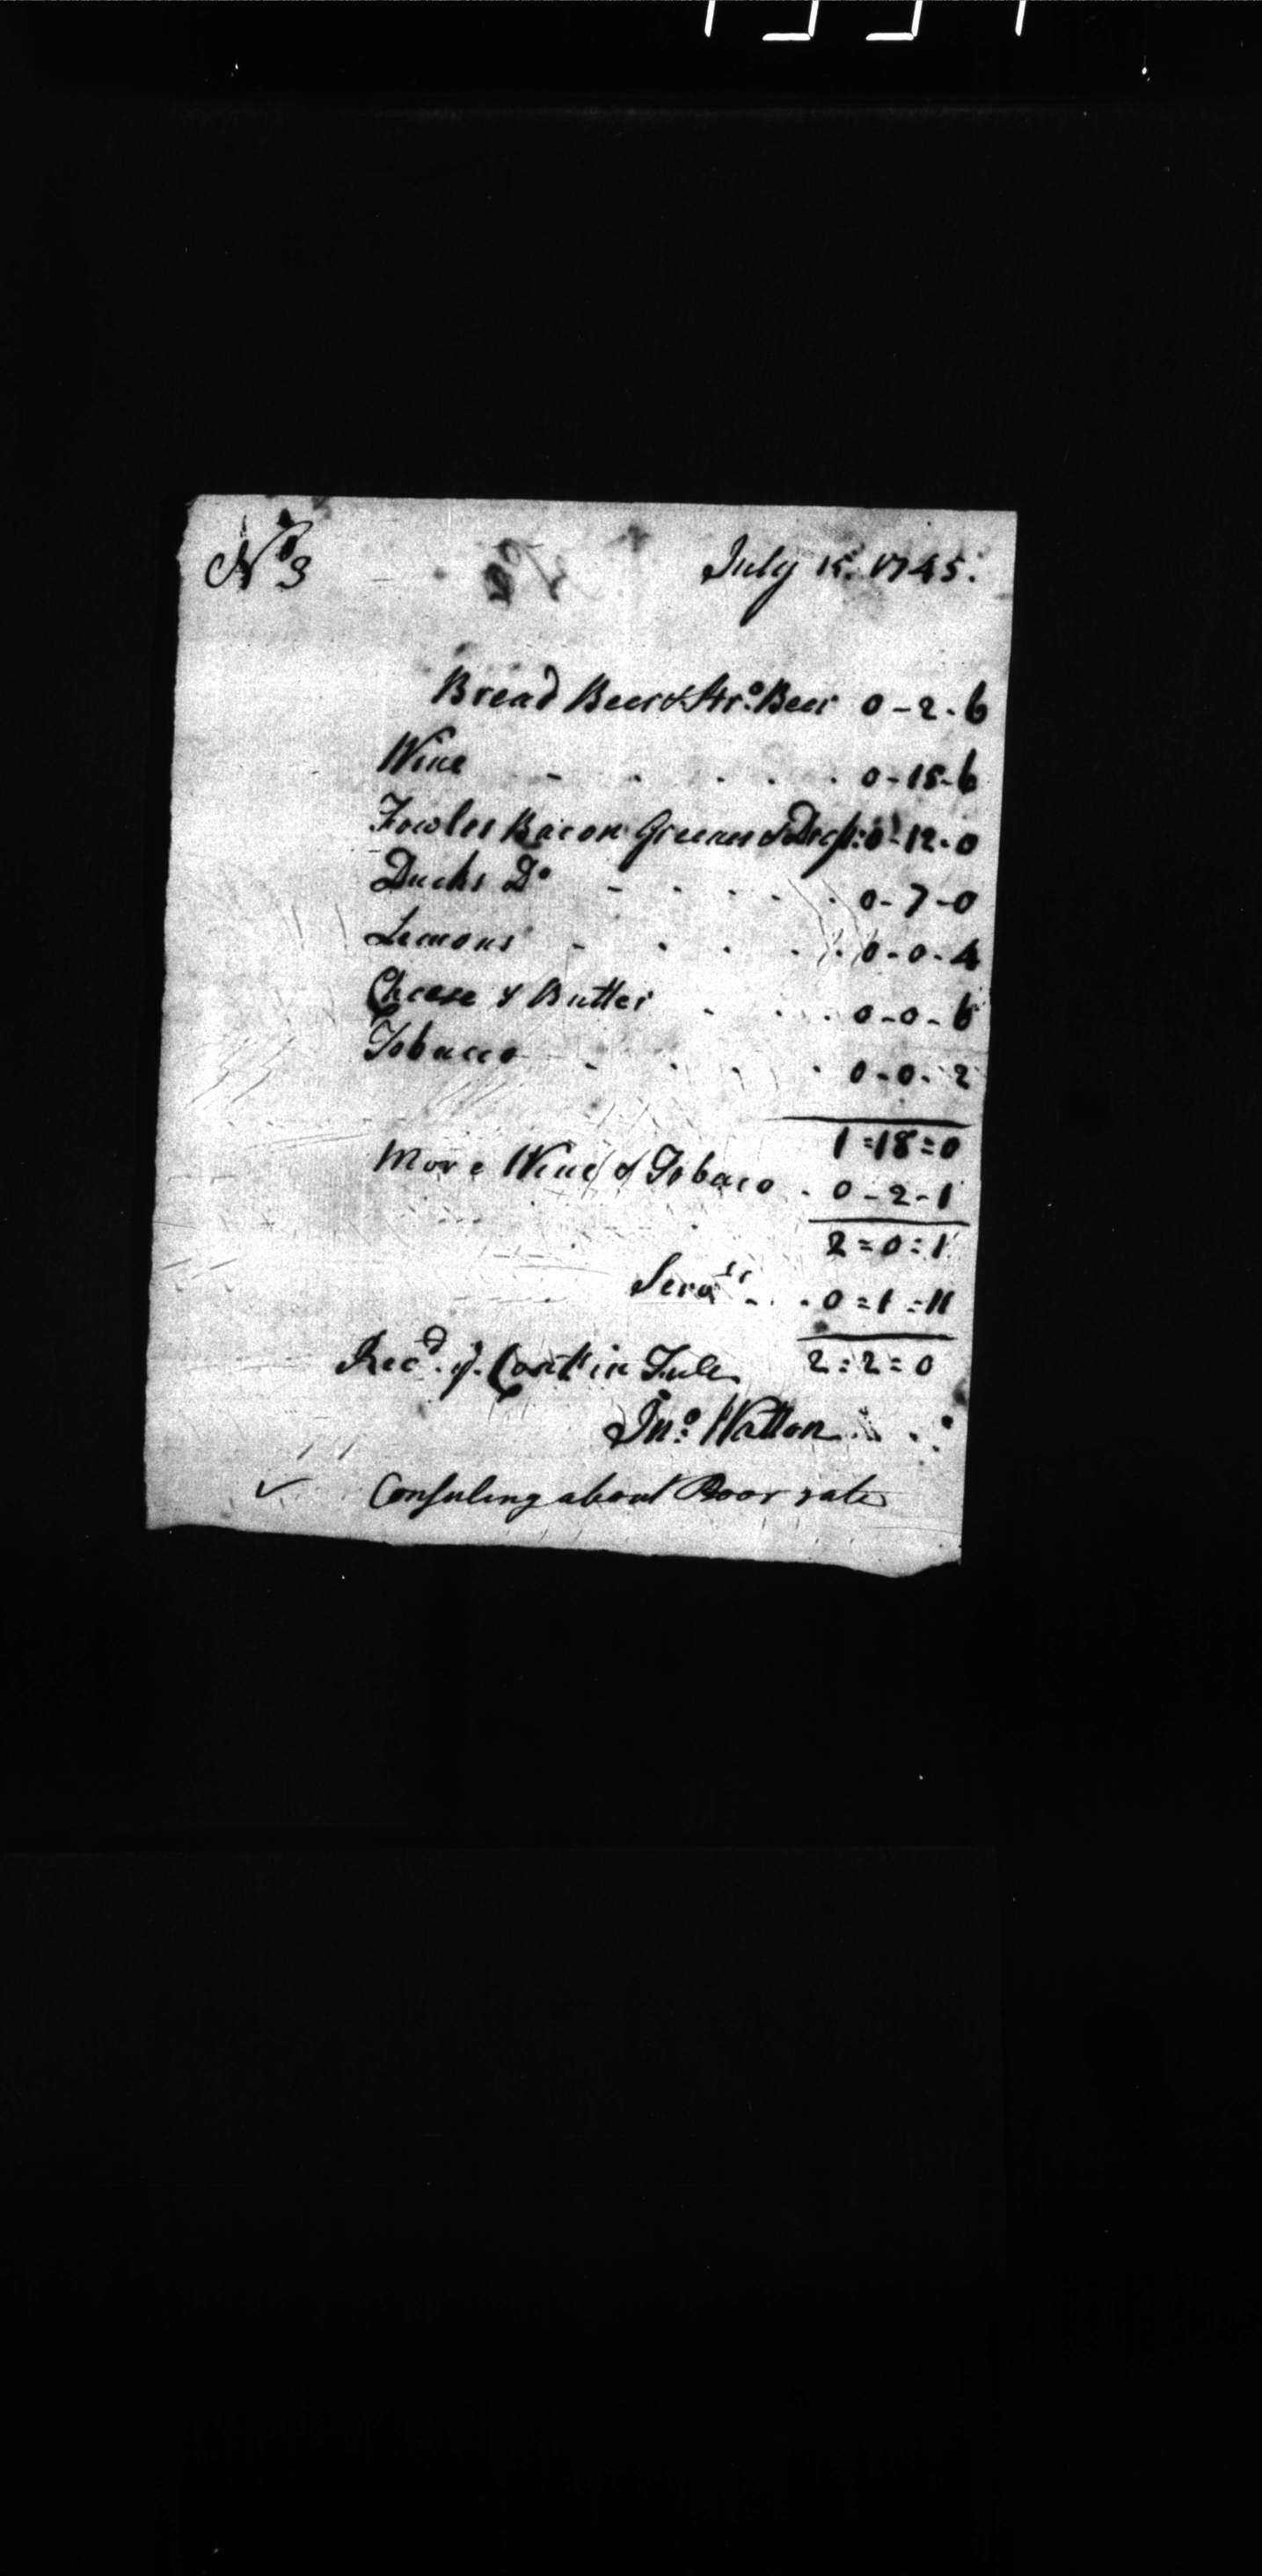 No 3
July 15. 1745.
Bread Beer & Stro. Beer 0-2-6
Wine - - . . . . 0-15-6
Fowles Bacon Greenes & 0-12-0
Ducks Do - . . . . 0-7-0
Lemons - . . . . 0-0-4
Cheese & Butter . . . 0-0-6
Tobacco - . . . 0-0-2
1=18=0
More Wine & Tobaco . 0-2-1
2=0=1
Servts - . . 0=1=11
Recd. ye. in Full 2=2=0
Jno. Watton
✓ Consuling about Poor rate